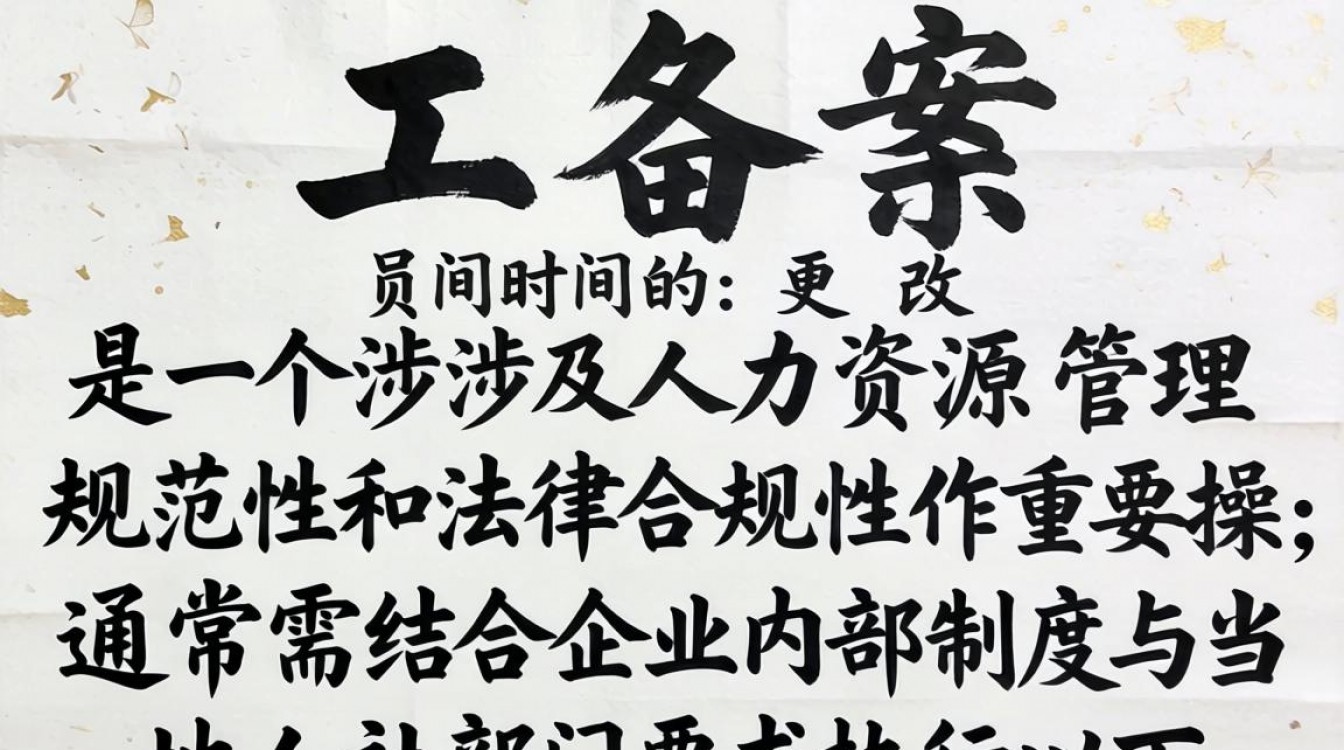 工备案
员间时间的：更 改
是一个涉涉及人力资源管理
规范性和法律合规性作重要操；
通常需结合企业内部制度与当
地人社部门要求执行以下